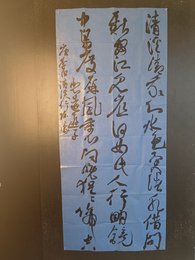 清溪清我心水色異諸水借問
新安江見底何如此人行明鏡
中鳥度屏風裏向晚猩猩啼空
悲遠遊子
李白清溪行